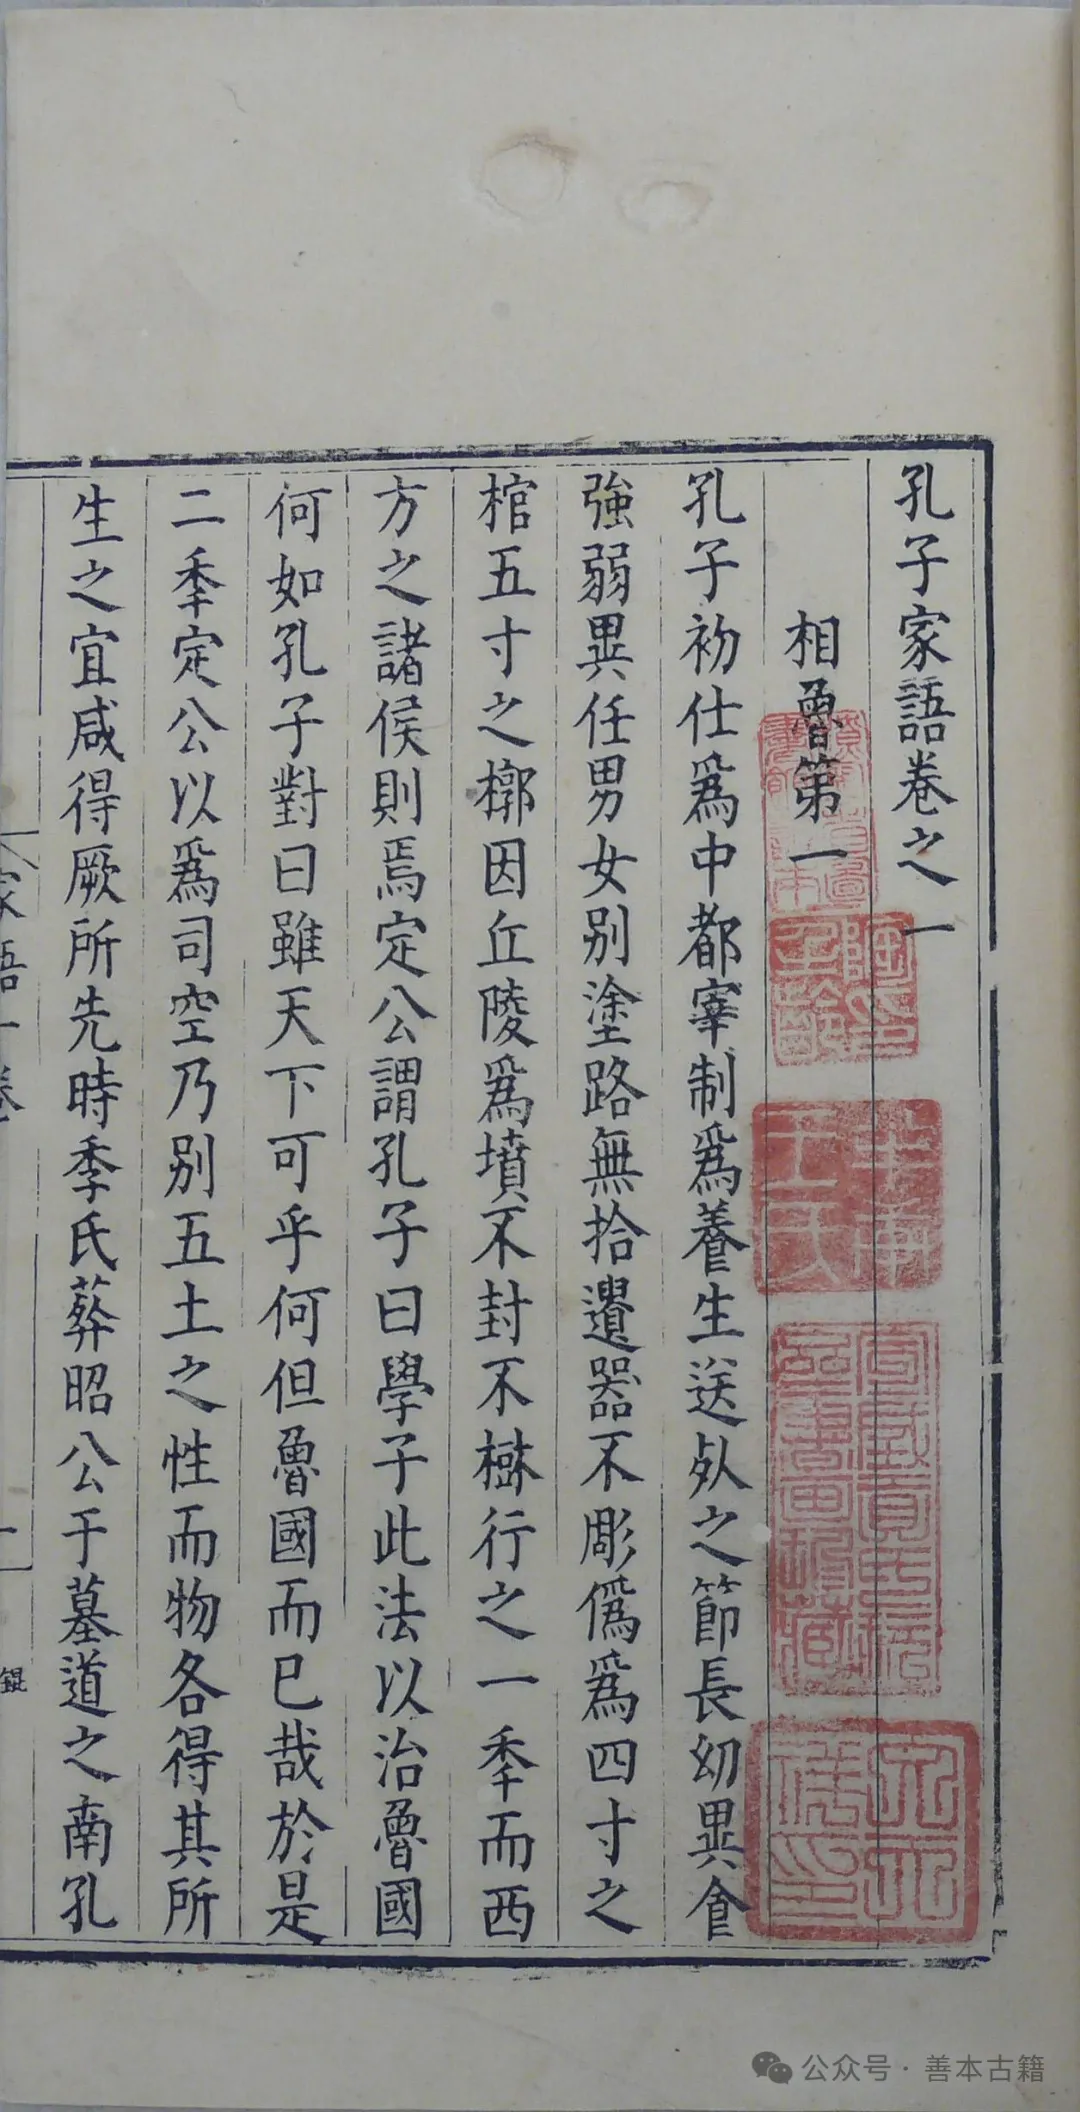 孔子家語卷之一
相魯第一
孔子初仕爲中都宰制爲養生送死之節長幼異食
強弱異任男女别塗路無拾遺器不彫僞爲四寸之
棺五寸之槨因丘陵爲墳不封不樹行之一秊而西
方之諸侯則焉定公謂孔子曰學子此法以治魯國
何如孔子對曰雖天下可乎何但魯國而已哉於是
二秊定公以爲司空乃别五土之性而物各得其所
生之宜咸得厥所先時季氏葬昭公于墓道之南孔
家語一卷
一
錕
公众号·善本古籍